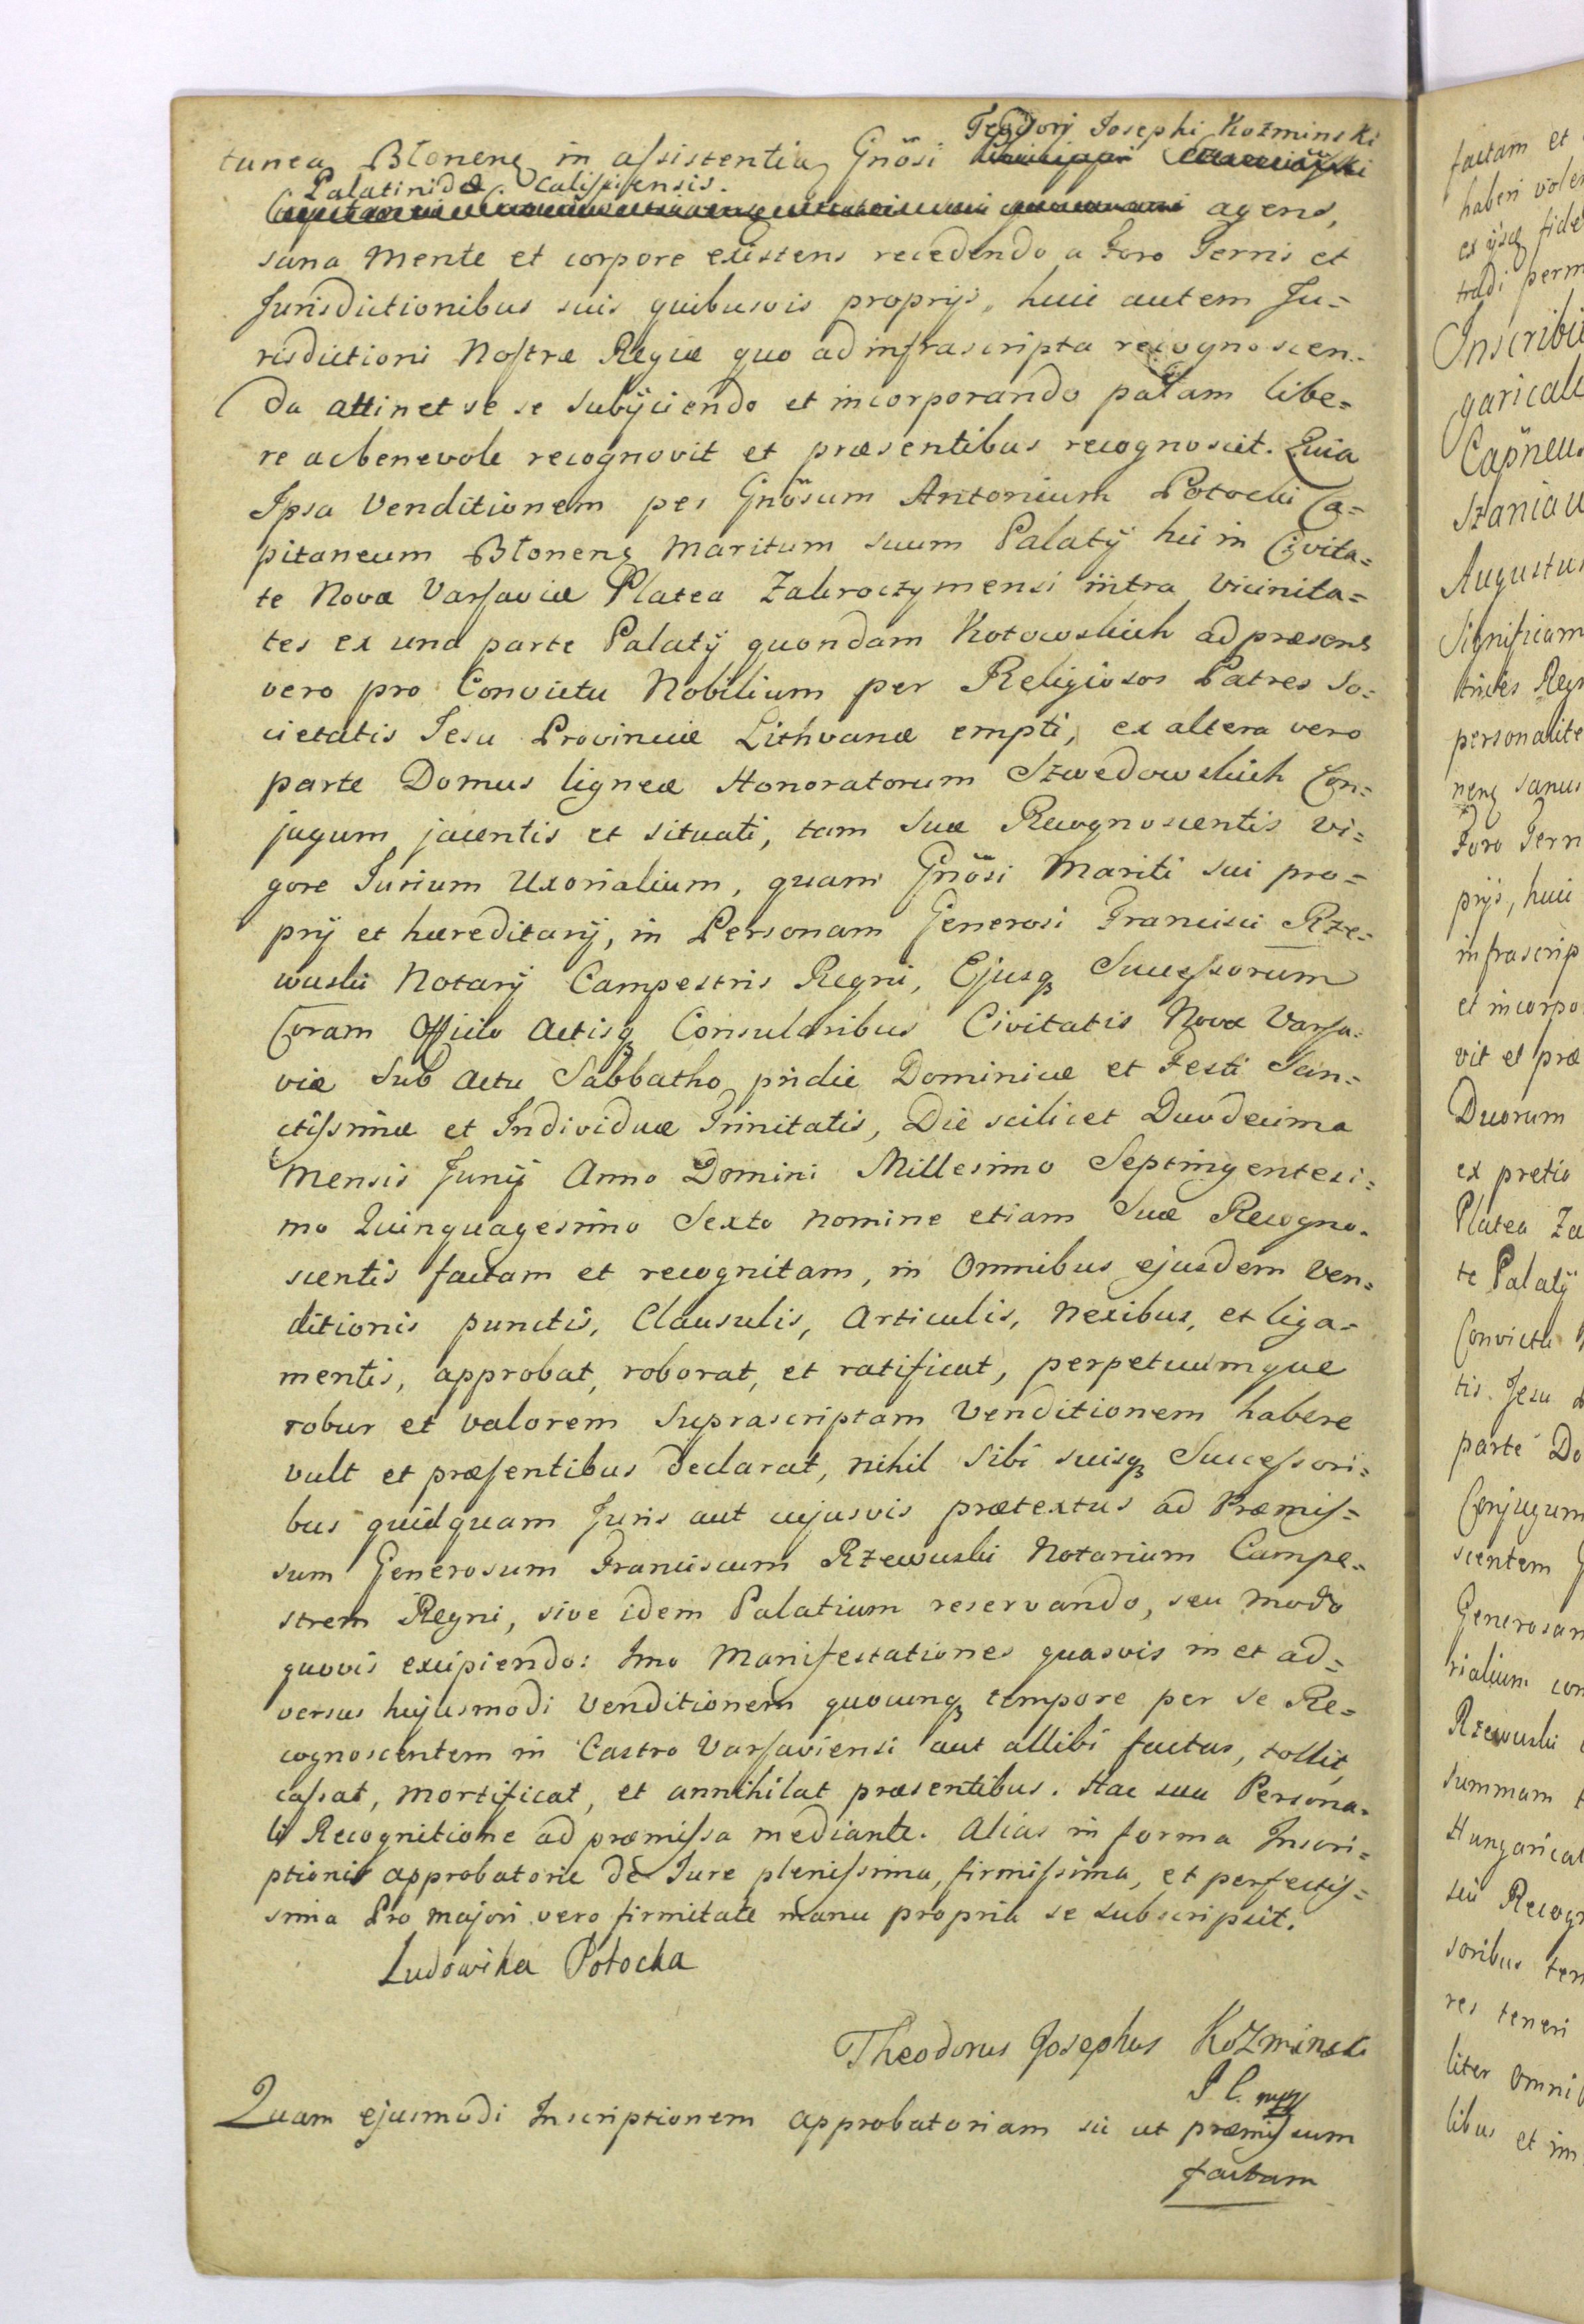 Teodorj Josephi Kozminski
taneaꝫ Błonenꝫ in assistentiaꝫ Gnõsi
Palatinidæ Calissiensis.
agens,
sana Mente et corpore existens recedendo a Foro Terris et
Jurisdictionibus suis quibusvis proprijs, huic autem Ju=
risdictioni Nostræ Regiæ quo ad infrascripta recognoscen=
da attinet se se subijciendo et incorporando palam libe=
re ac benevole recognovit et præsentibus recognoscit. Quia
Ipsa Venditionem per Gnõsum Antonium Potocki Ca=
pitaneum Błonenꝫ Maritum suum Palatij hic in Civita=
te Nova Varsaviæ Platea Zakroczymensi intra Vicinita=
tes ex una parte Palatij quondam Kotowskich ad præsens
vero pro Convictu Nobilium per Religiosos Patres So=
cietatis Jesu Provinciæ Lithvanæ empti, ex altera vero
parte Domus ligneæ Honoratorum Szwedowskich Con=
jugum jacentis et situati, tam Suæ Recognoscentis vi=
gore Jurium Uxorialium, quam Gnõsi Mariti sui pro=
prij et hæreditarij, in Personam Generosi Francisci Rze=
wuski Notarij Campestris Regni, Ejusqꝫ Successorum
Coram Officio Actisqꝫ Consularibus Civitatis Novæ Varsa=
viæ Sub Actu Sabbatho pridie Dominicæ et Festi San=
ctissimæ et Individuæ Trinitatis, Die scilicet Duodecima
Mensis Junij Anno Domini Millesimo Septingentesi=
mo Quinquagesimo Sexto nomine etiam Suæ Recogno=
scentis factam et recognitam, in Omnibus ejusdem Ven=
ditionis punctis, Clausulis, Articulis, Nexibus, et liga=
mentis, approbat, roborat, et ratificat, perpetuumque
robur et valorem Suprascriptam Venditionem habere
vult et præsentibus declarat, nihil Sibi suisqꝫ Successori=
bus quidquam Juris aut cujusvis prætextus ad Præmis=
sum Generosum Franciscum Rzewuski Notarium Campe=
strem Regni, sive idem Palatium reservando, seu modo
quovis excipiendo: Imo Manifestationes quasvis in et ad=
versus hujusmodi Venditionem quocunqꝫ tempore per se Re=
cognoscentem in Castro Varsaviensi aut allibi factas, tollit,
cassat, mortificat, et annihilat præsentibus. Hac sua Persona=
li Recognitione ad præmissa mediante. Alias in forma Inscri=
ptionis approbatoriæ de Jure plenissima, firmissima, et perfectis=
sima Pro majori vero firmitate manu propria se subscripsit.
Ludowika Potocka
Theodorus Josephus Kozminski
P C. mpp
Quam ejusmodi Inscriptionem approbatoriam sic ut præmissum
factam
factam et
haberi
ex ijsqꝫ fide
tradi perm
Inscribi
garicali
Capñeu
Staniau
Augustus
Significam
personalite
nenꝫ sanus
Foro Terri
prijs, huic
infrascrip
et incorpo
vit et præ
Duorum
ex pretio
Platea Za
te Palatij
Convictu
tis Jesu
parte Do
Conjugum
scentem
Generosam
rialium con
Rzewuski
Summam
Hungarical
Recogn
soribus ten
res teneri
liter omni
libus et im